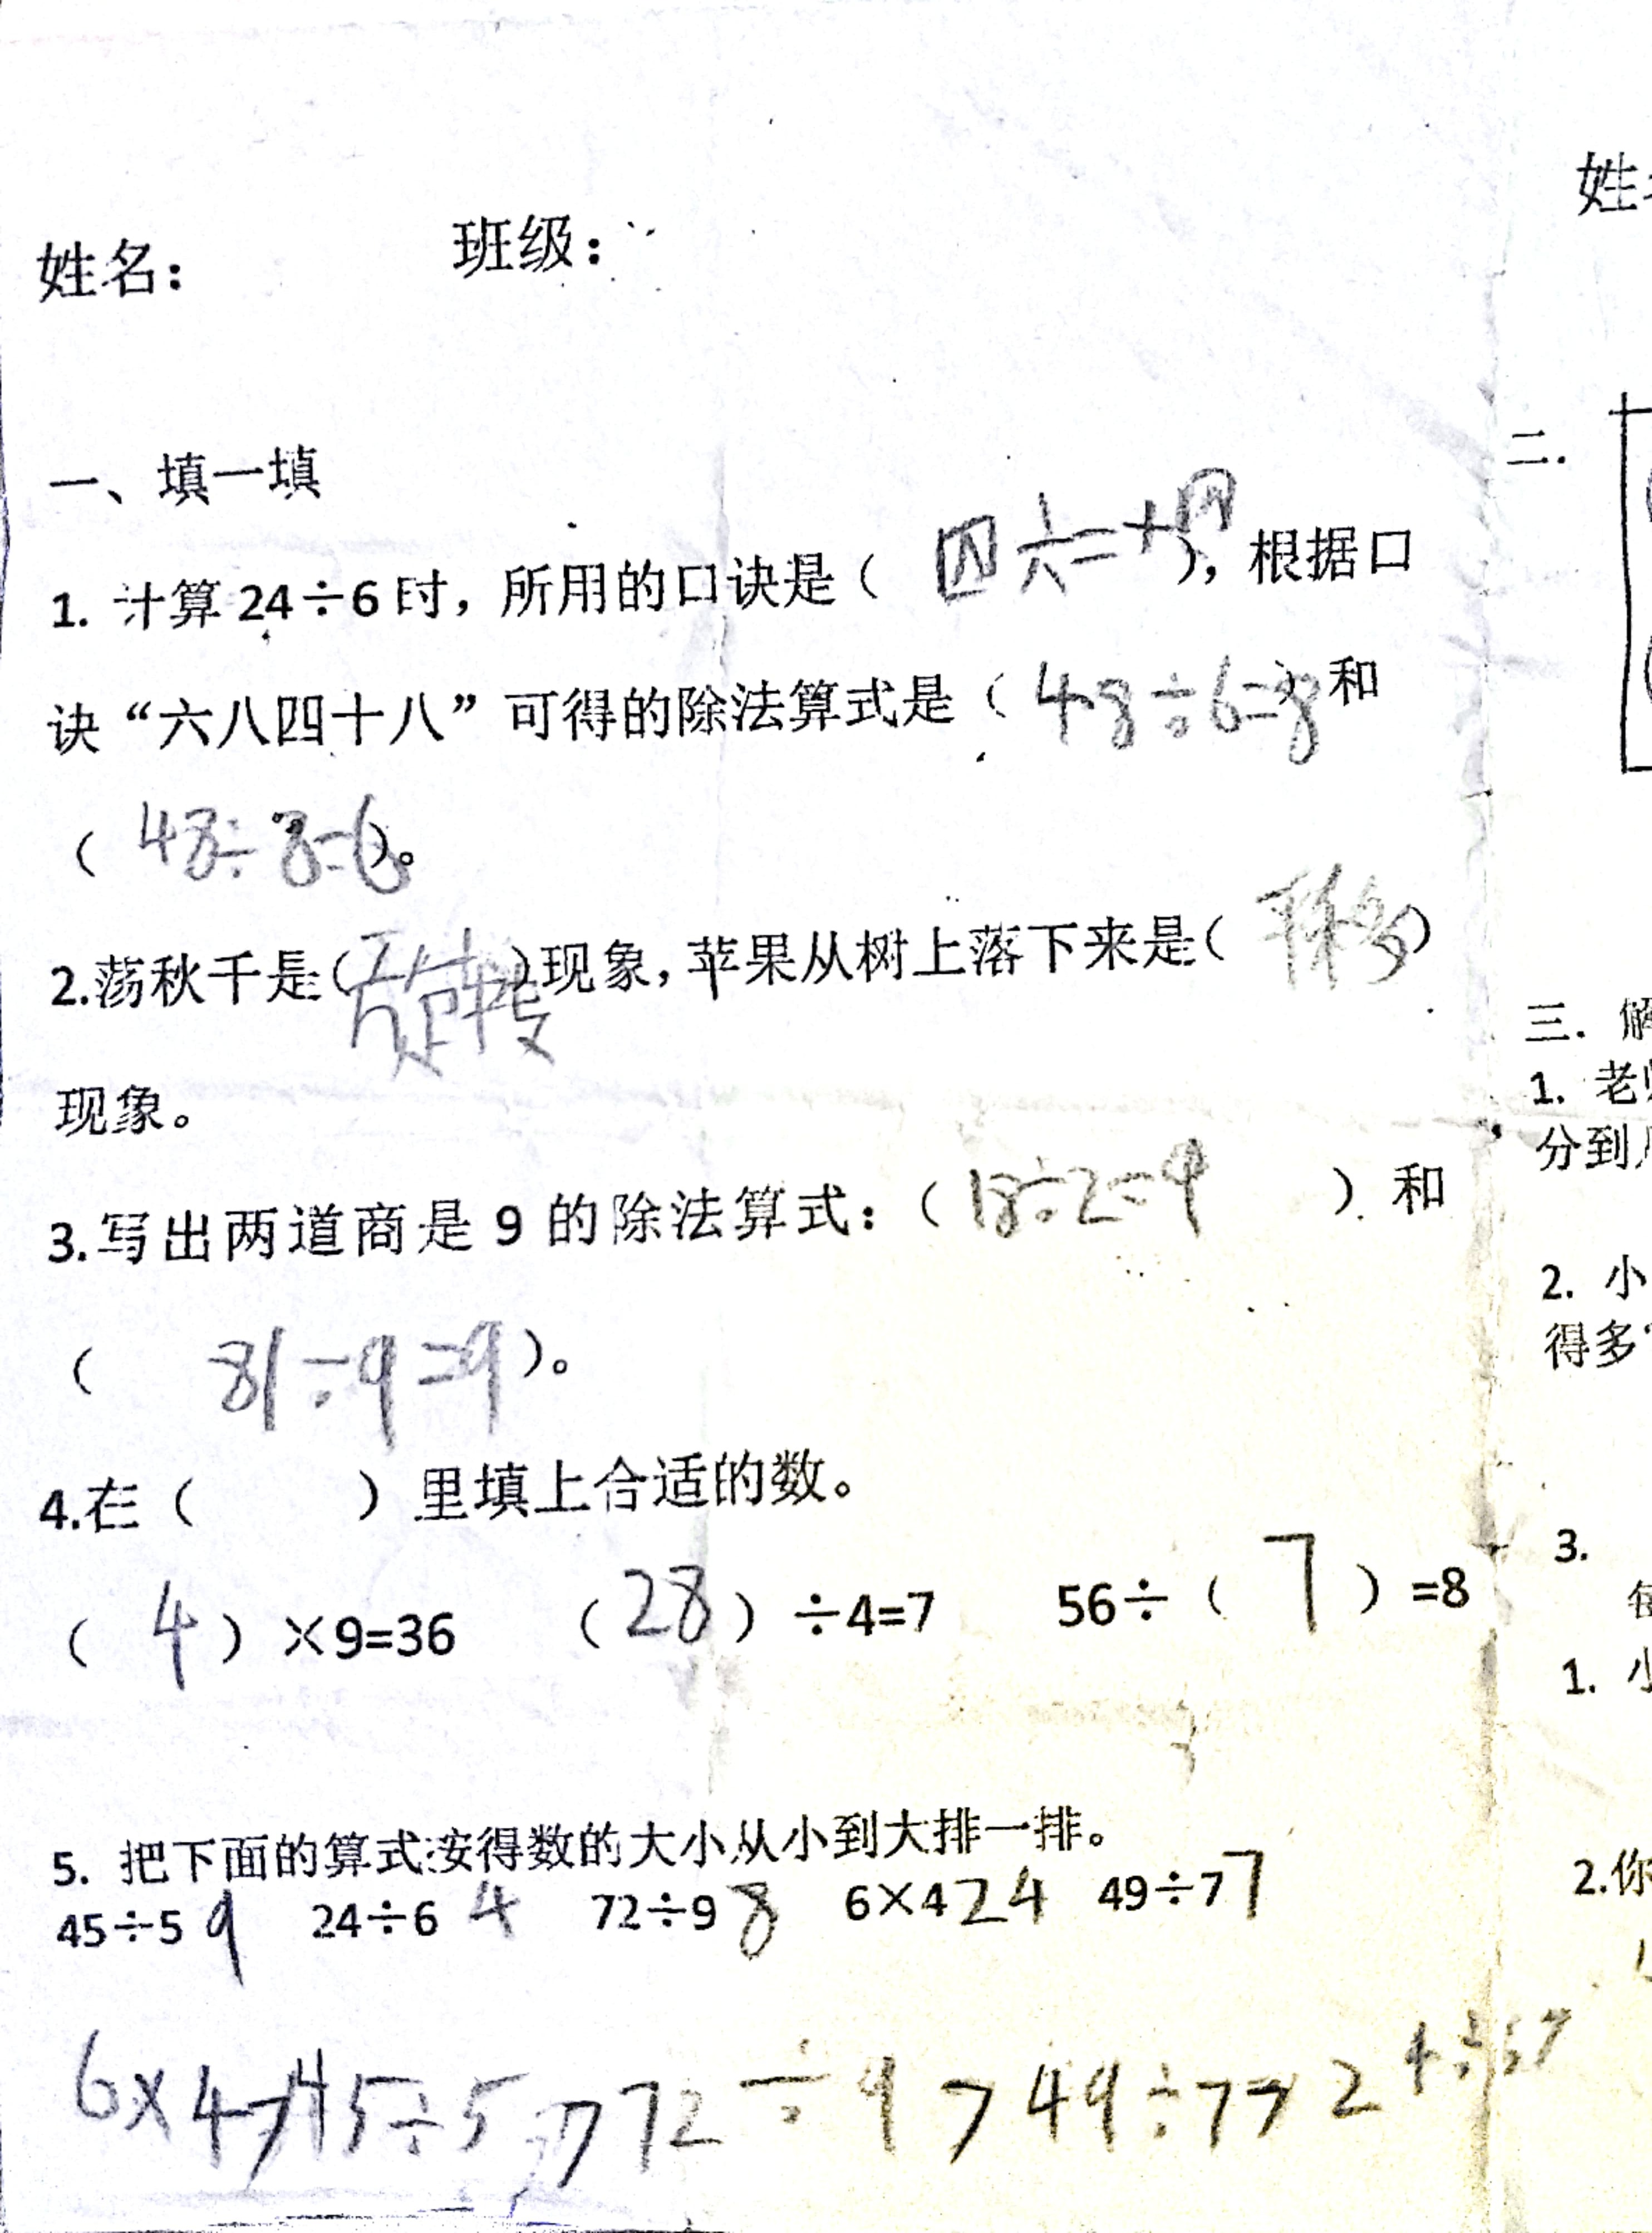 姓名： 班级：
一、填一填
1. 计算24÷6时，所用的口诀是（四六二十四），根据口
诀“六八四十八”可得的除法算式是（48÷6=8）和
（48÷8=6）。
2.荡秋千是(旋转)现象，苹果从树上落下来是(平移)
现象。
3.写出两道商是9的除法算式：（18÷2=9）和
（81÷9=9）。
4.在（ ）里填上合适的数。
（4）×9=36 （28）÷4=7 56÷（7）=8
5. 把下面的算式按得数的大小从小到大排一排。
45÷5 9 24÷6 4 72÷9 8 6×4 24 49÷7 7
6×4>45÷5>72÷9>49÷7>24÷6
姓
二.
三. 解
1. 老
分到
2. 小
得多
3.
每
1. 小
2.你